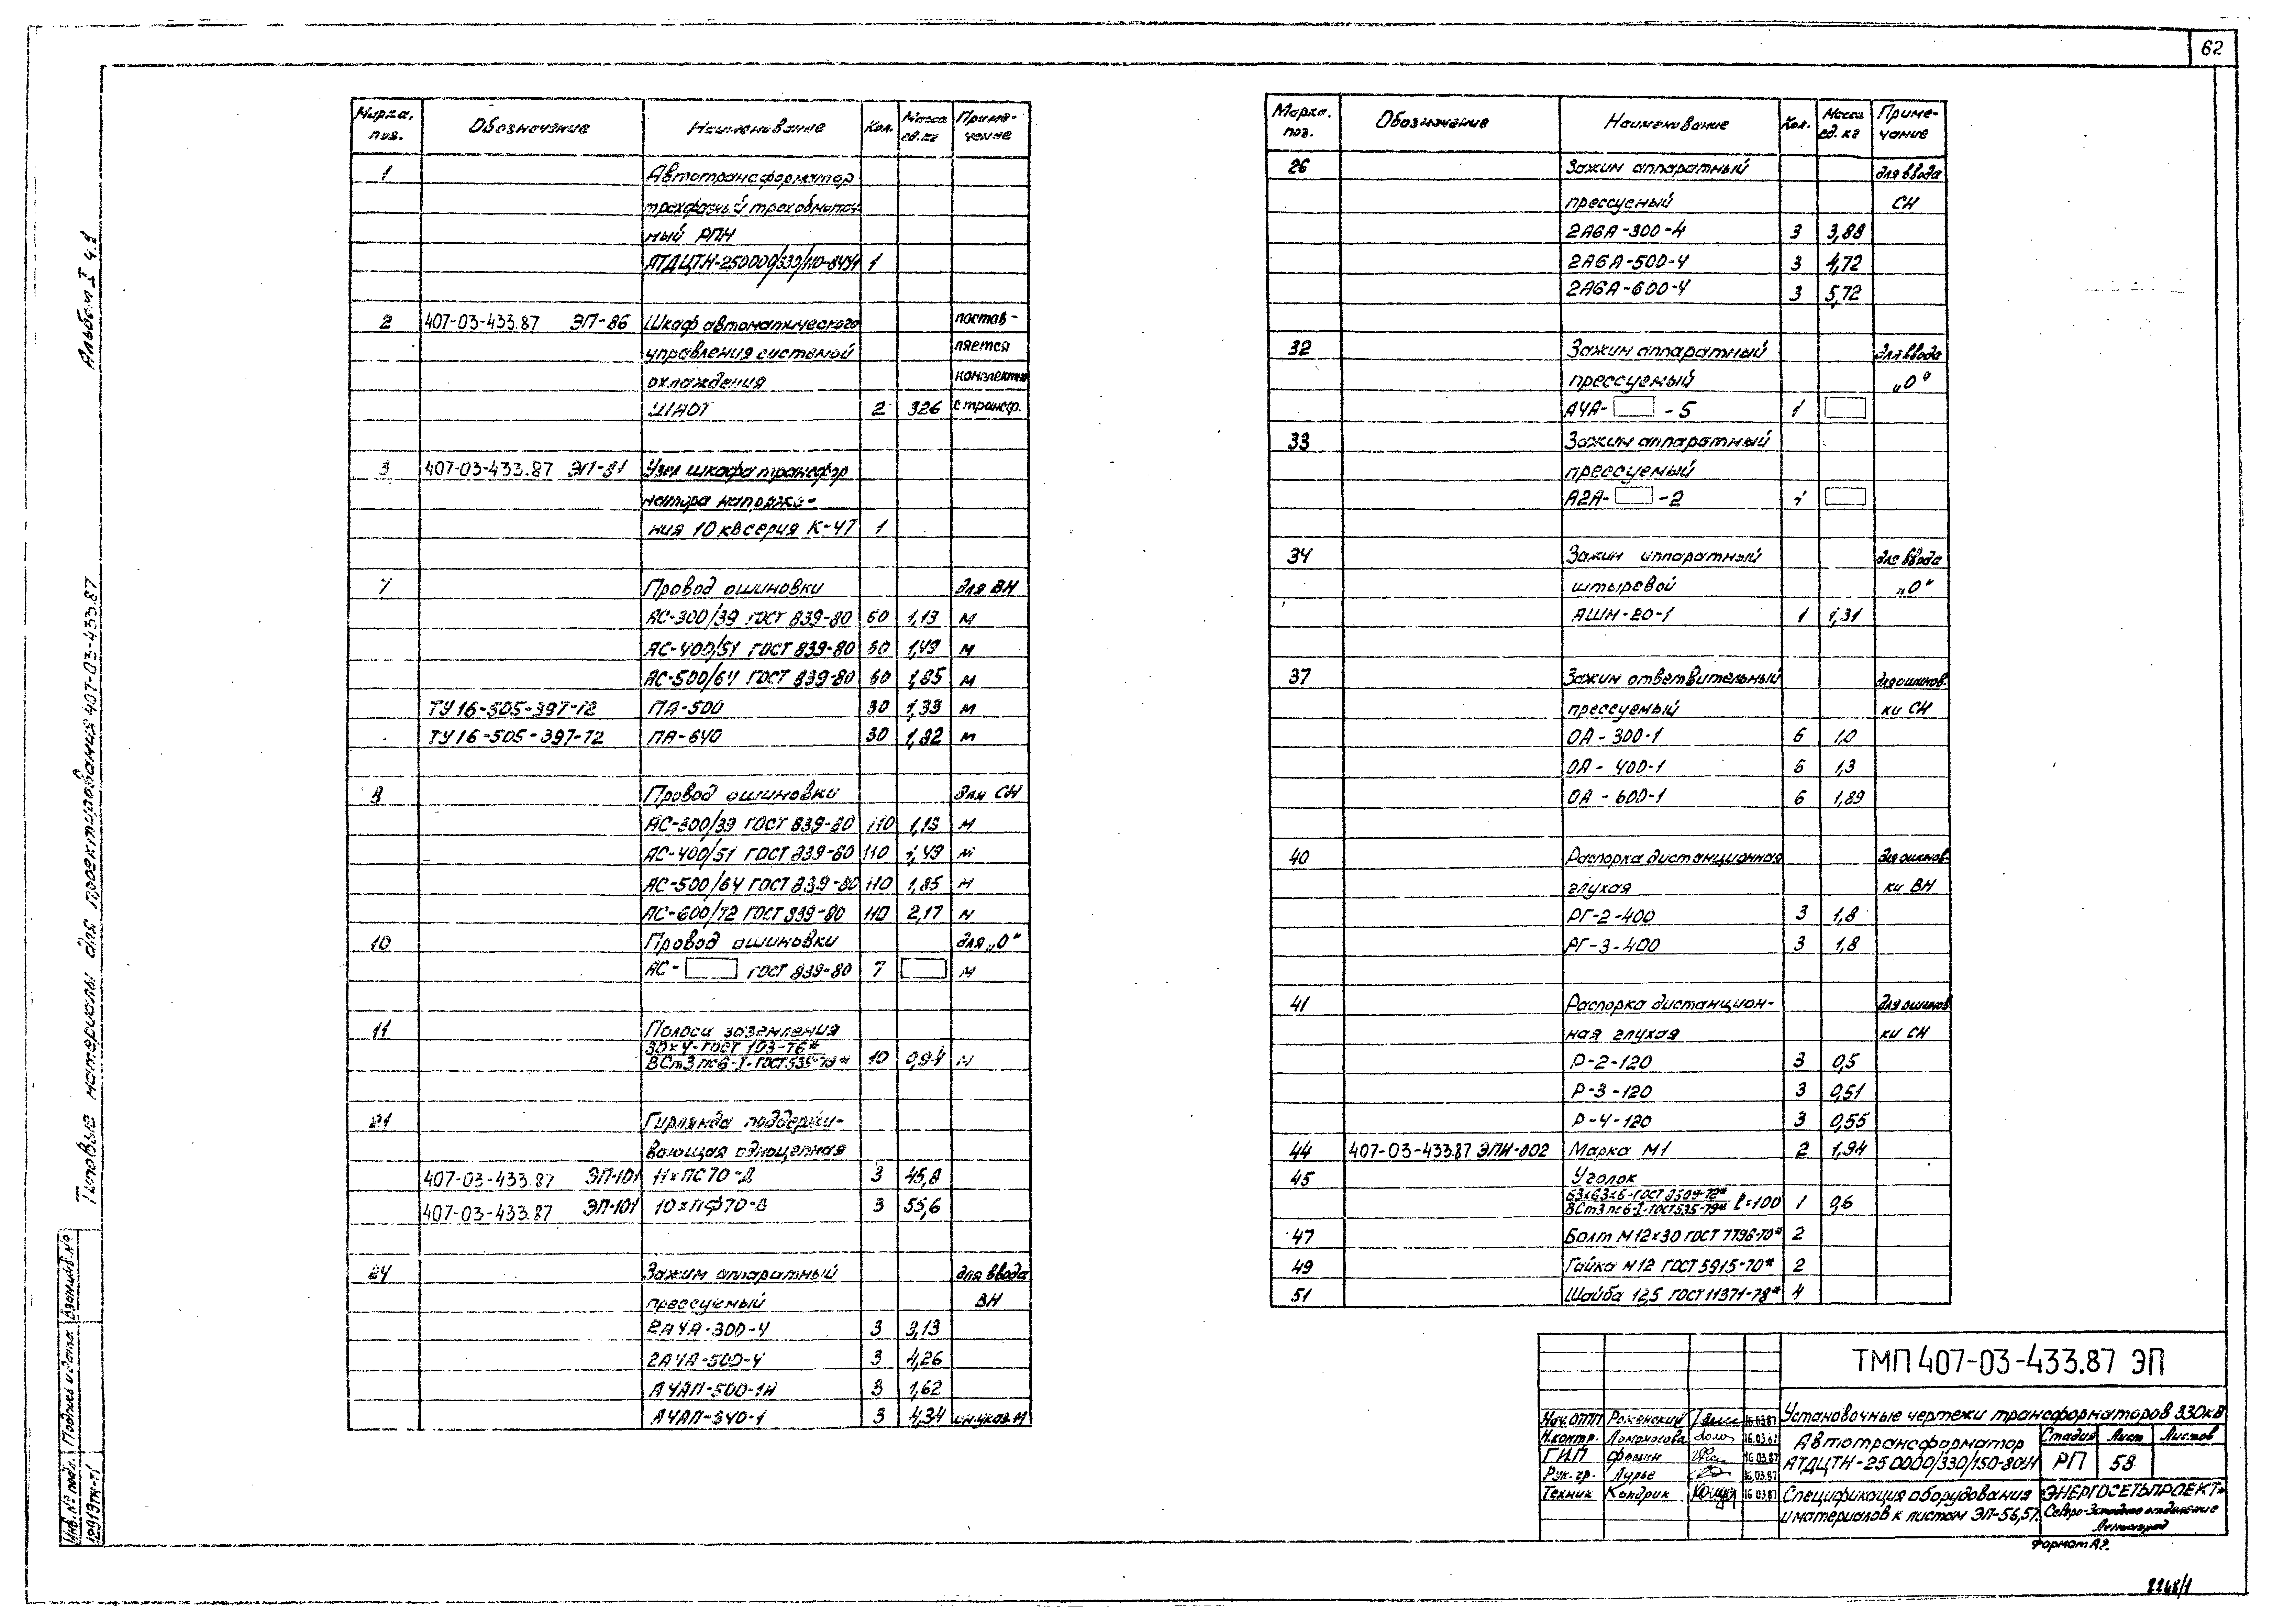 62
Марка, поз. Обозначение Наименование Кол. Масса ед. кг Приме-чание
1 Автотрансформатор
трехфазный трехобмоточ-
ный РПН
АТДЦТН-250000/330/110- 1
2 407-03-433.87 ЭП-86 Шкаф автоматического постав-
управления системой ляется
охлаждения комплектно
ШАОТ 2 326 с трансф.
3 407-03-433.87 ЭП-81 Узел шкафа трансфор
матора напряже-
ния 10 кв серия К-47 1
7 Провод ошиновки для ВН
АС-300/39 ГОСТ 839-80 60 1,13 м
АС-400/51 ГОСТ 839-80 60 1,49 м
АС-500/64 ГОСТ 839-80 60 1,85 м
ТУ16-505-397-72 ПА-500 30 1,33 м
ТУ16-505-397-72 ПА-640 30 1,82 м
8 Провод ошиновки для СН
АС-300/39 ГОСТ 839-80 110 1,13 м
АС-400/51 ГОСТ 839-80 110 1,49 м
АС-500/64 ГОСТ 839-80 110 1,85 м
АС-600/72 ГОСТ 839-80 110 2,17 м
10 Провод ошиновки для „О“
АС- ГОСТ 839-80 7 м
11 Полоса заземления
30×4-ГОСТ 103-76*
ВСт3пс6-I-ГОСТ535-79* 10 0,94 м
21 Гирлянда поддержи-
вающая одноцепная
407-03-433.87 ЭП-101 11×ПС70-Д 3 45,8
407-03-433.87 ЭП-101 10×ПФ70-В 3 55,6
24 Зажим аппаратный для ввода
прессуемый ВН
2А4А-300-4 3 3,13
2А4А-500-4 3 4,26
А4АП-500-1А 3 1,62
А4АП-640-1 3 4,34
Марка, поз. Обозначение Наименование Кол. Масса ед. кг Приме-чание
26 Зажим аппаратный для ввода
прессуемый СН
2А6А-300-4 3 3,88
2А6А-500-4 3 4,72
2А6А-600-4 3 5,72
32 Зажим аппаратный для ввода
прессуемый „О“
А4А- -5 1
33 Зажим аппаратный
прессуемый
А2А- -2 1
34 Зажим аппаратный для ввода
штыревой „О“
АШМ-20-1 1 1,31
37 Зажим ответвительный для ошинов.
прессуемый ки СН
ОА-300-1 6 1,0
ОА-400-1 6 1,3
ОА-600-1 6 1,89
40 Распорка дистанционная для ошинов-
глухая ки ВН
РГ-2-400 3 1,8
РГ-3-400 3 1,8
41 Распорка дистанцион- для ошинов
ная глухая ки СН
Р-2-120 3 0,5
Р-3-120 3 0,51
Р-4-120 3 0,55
44 407-03-433.87 ЭПИ-002 Марка М1 2 1,94
45 Уголок
63×63×6-ГОСТ 8509-72*
ВСт3пс6-I-ГОСТ535-79* ℓ=100 1 0,6
47 Болт М12×30 ГОСТ 7798-70* 2
49 Гайка М12 ГОСТ 5915-70* 2
51 Шайба 12,5 ГОСТ 11371-78* 4
ТМП 407-03-433.87 ЭП
Установочные чертежи трансформаторов 330кВ
Нач. ОТП Роменский 16.03.87
Н.контр. Ломоносова 16.03.87
ГИП Фомин 16.03.87
Рук. гр. Лурье 16.03.87
Техник Кондрик 16.03.87
Автотрансформатор
АТДЦТН-250000/330/150-80У1
Стадия Лист Листов
РП 58
Спецификация оборудования
и материалов к листам ЭП-56,57.
«ЭНЕРГОСЕТЬПРОЕКТ»
Северо-Западное отделение
Ленинград
Формат А2.
2248/1
Альбом I ч.2
Типовые материалы для проектирования 407-03-433.87
Взам.инв.№
Подпись и дата
Инв.№ подл.
12919тм-т1